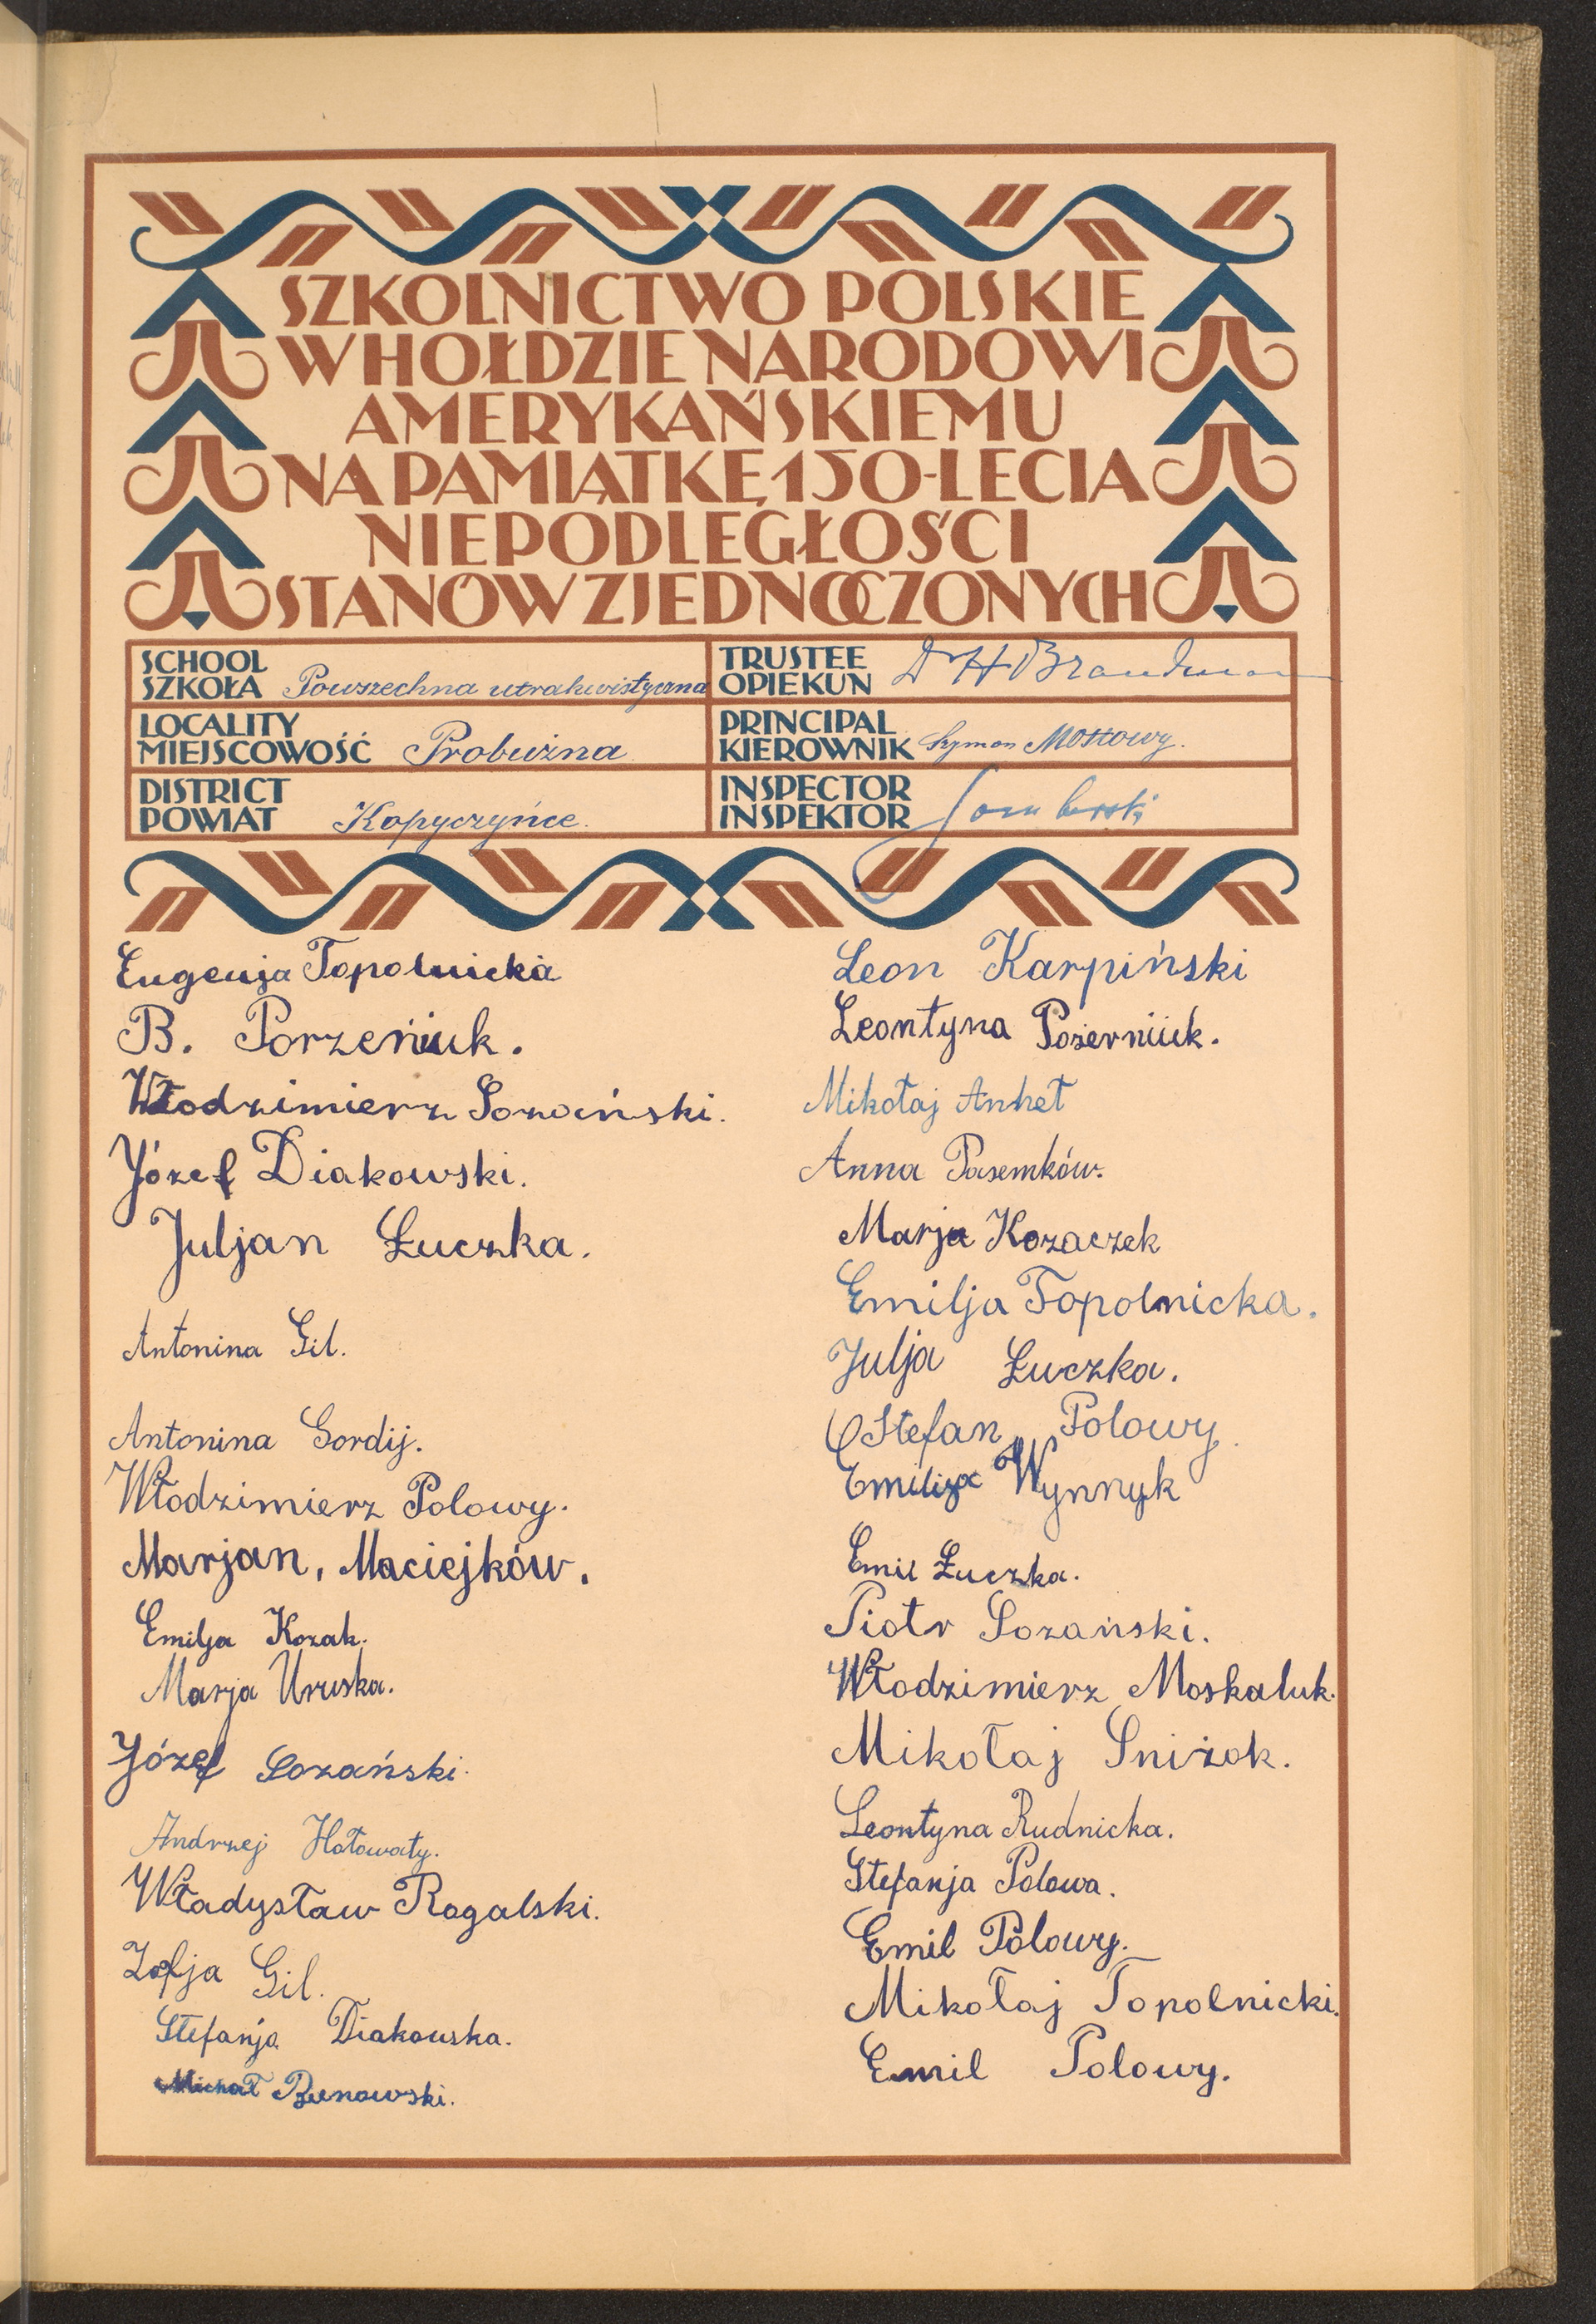 SZKOLNICTWO POLSKIE
W HOŁDZIE NARODOWI
AMERYKAŃSKIEMU
NA PAMIĄTKĘ 150-LECIA
NIEPODLEGŁOŚCI
STANÓW ZJEDNOCZONYCH
SCHOOL
SZKOŁA Powszechna utrakwistyczna
TRUSTEE
OPIEKUN Dr H Brandman
LOCALITY
MIEJSCOWOŚĆ Probużna
PRINCIPAL
KIEROWNIK Szymon Mostowy.
DISTRICT
POWIAT Kopyczyńce.
INSPECTOR
INSPEKTOR
Eugenja Topolnicka
B. Porzeniuk.
Włodzimierz Sozański.
Józef Diakowski.
Juljan Łuczka.
Antonina Gil.
Antonina Gordij.
Włodzimierz Polowy.
Marjan, Maciejków.
Emilja Kozak.
Marja Uruska.
Józef Sozański.
Andrzej Hołowaty.
Władysław Rogalski.
Zofja Gil.
Stefanja Diakowska.
Michał
Leon Karpiński
Leontyna Pożerniuk.
Mikołaj Anhet
Anna Pasemków.
Marja Kozaczek
Emilja Topolnicka.
Julja Łuczka.
Stefan Polowy.
Emilija Wynnyk
Emil Łuczka.
Piotr Sozański.
Włodzimierz Moskaluk.
Mikołaj Śniżok.
Leontyna Rudnicka.
Stefanja Polowa.
Emil Polowy.
Mikołaj Topolnicki.
Emil Polowy.